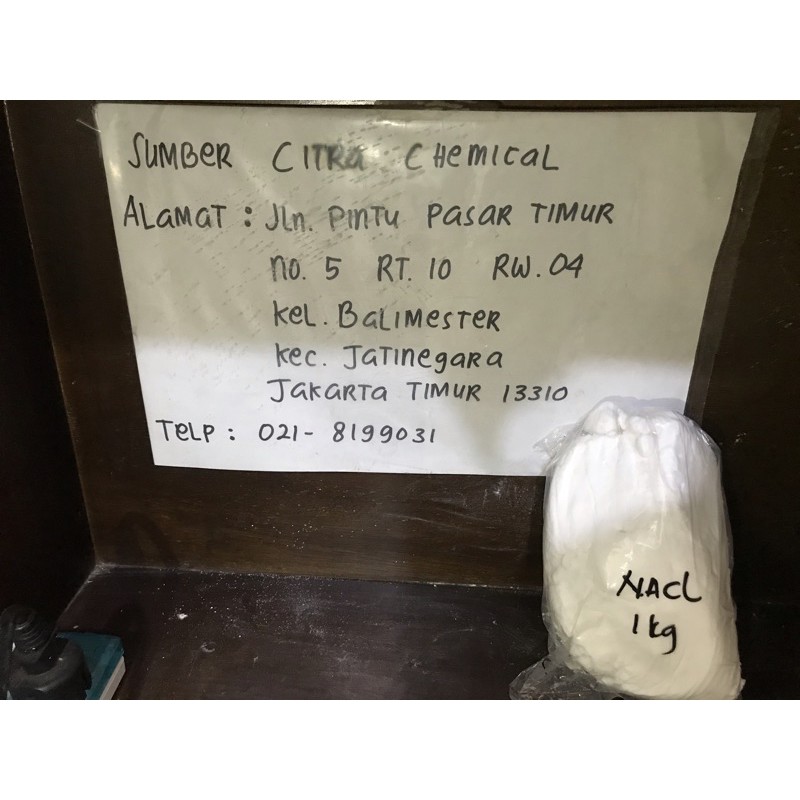 SUMBER CITRA CHEMICAL
ALAMAT : Jln. PINTU PASAR TIMUR
NO. 5 RT. 10 RW. 04
KEL. BALIMESTER
KEC. JATINEGARA
JAKARTA TIMUR 13310
TELP : 021- 8199031
NACL
1 kg